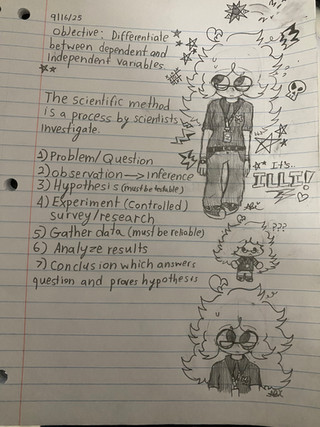 9/16/25
Objective: Differentiate
between dependent and
Independent Variables.
The scientific method
is a process by scientists
Investigate.
1) Problem/Question
2) Observation → inference
3) Hypothesis (must be testable)
4) Experiment (Controlled)
survey/research
5) Gather data (must be reliable)
6) Analyze results
7) Conclusion which answers
question and proves hypothesis
It's..
???